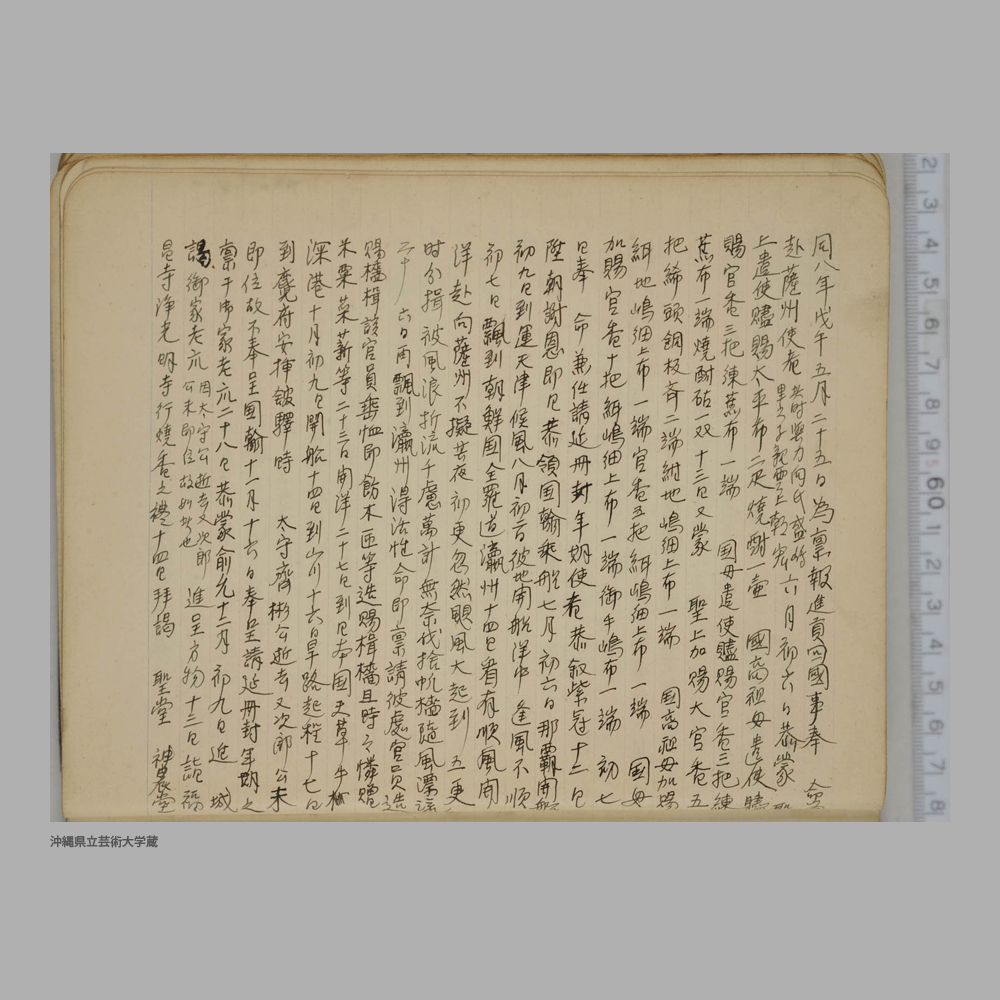 同八年戊午五月二十五日為稟報進貢回國事奉 命
赴薩州使者 其時與力向氏盛 里之子親雲上朝 六月初六日恭蒙 聖
上遣使贐賜太平布二疋燒酎一壷 國高祖母遣使贐
賜官香三把練蕉布一端 国母遣使贐賜官香三把練
蕉布一端燒酎砧一双十三日又蒙 聖上加賜大官香五
把 綿頭銅板斉二端紺地嶋細上布一端 国高祖母加賜
紺地嶋細上布一端官香五把紺嶋細上布一端 国母
加賜官香十把紺嶋細上布一端御手嶋布一端 初七
日奉 命兼任請延冊封年期使者恭叙紫冠十二日
陞朝謝恩即日恭領国翰乘船七月初六日那覇開船
初九日到運天津候風八月初二日彼地開船洋中逢風不順
初七日飄到朝鮮国全羅道瀛州十四日看有順風開
洋赴向薩州不擬其夜初更忽然颶風大起到五更
時分揖被風浪折流千慮萬計無奈伐捨帆檣随風漂流
二十六日再飄到瀛州得活性命即稟請彼處官員造
賜檣楫該官員垂恤即飭木匠等造賜楫檣且時々憐贈
米粟菜薪等二十三日開洋二十七日到日本国天草牛
深港十月初九日開船十四日到山川十六日早路起程十七日
到麑府安揷舘驛時 太守齊彬公逝去又次郎公未
即位故不奉呈国翰十一月十六日奉呈請延冊封年期之
稟于御家老亢二十八日恭蒙俞允十二月初九日進城
謁御家老亢 因太守公逝去又次郎 公未即位故如此也 進呈方物十三日詣福
昌寺淨光明寺行燒香之禮十四日拜謁 聖堂 神農堂